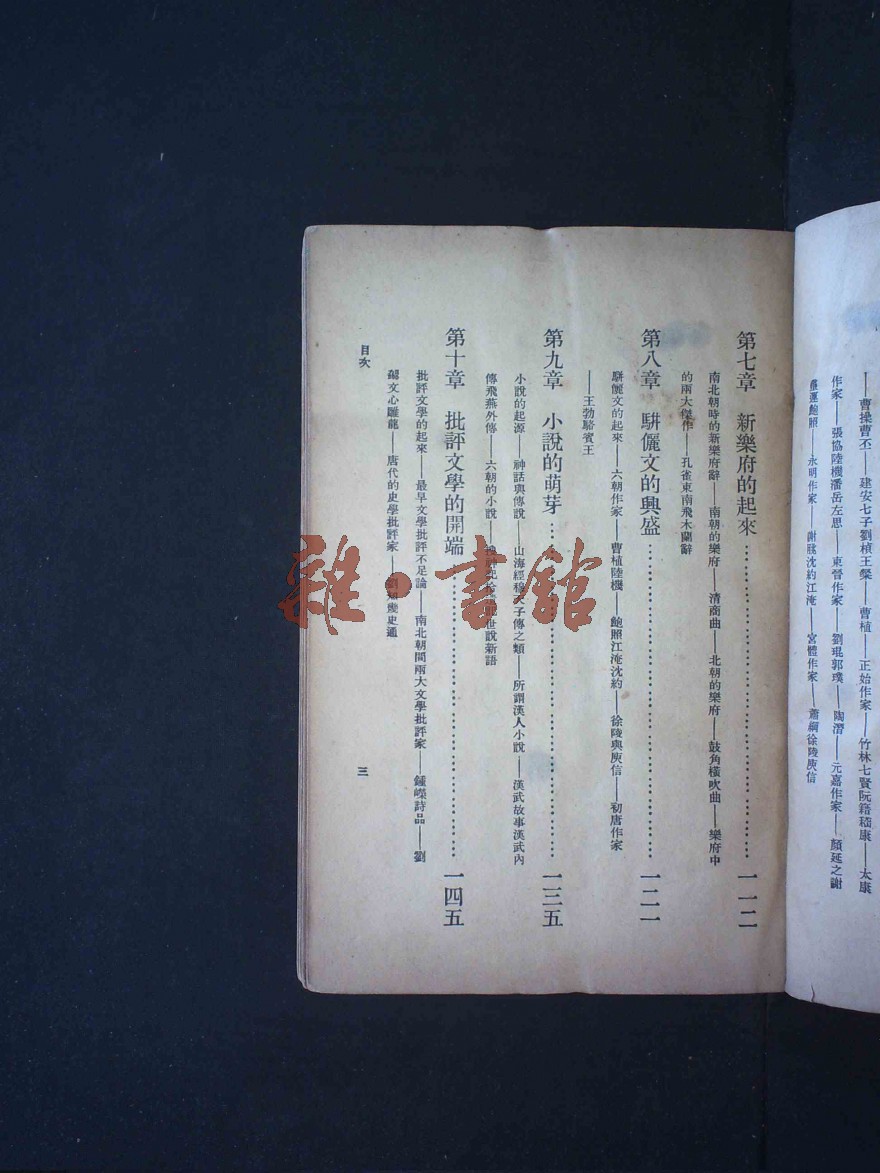 ——曹操曹丕——建安七子劉楨王粲——曹植——正始作家——竹林七賢阮籍嵇康——太康
作家——張協陸機潘岳左思——東晉作家——劉琨郭璞——陶潛——元嘉作家——顏延之謝
靈運鮑照——永明作家——謝朓沈約江淹——宮體作家——蕭綱徐陵庾信
第七章 新樂府的起來……一一二
南北朝時的新樂府辭——南朝的樂府——清商曲——北朝的樂府——鼓角橫吹曲——樂府中
的兩大傑作——孔雀東南飛木蘭辭
第八章 駢儷文的興盛……一二一
駢儷文的起來——六朝作家——曹植陸機——鮑照江淹沈約——徐陵與庾信——初唐作家
——王勃駱賓王
第九章 小說的萌芽……一三五
小說的起源——神話與傳說——山海經穆天子傳之類——所謂漢人小說——漢武故事漢武內
傳飛燕外傳——六朝的小說——世說新語
第十章 批評文學的開端……一四五
批評文學的起來——最早文學批評不足論——南北朝間兩大文學批評家——鍾嶸詩品——劉
勰文心雕龍——唐代的史學批評家——劉知幾史通
目次
三
雜·書館